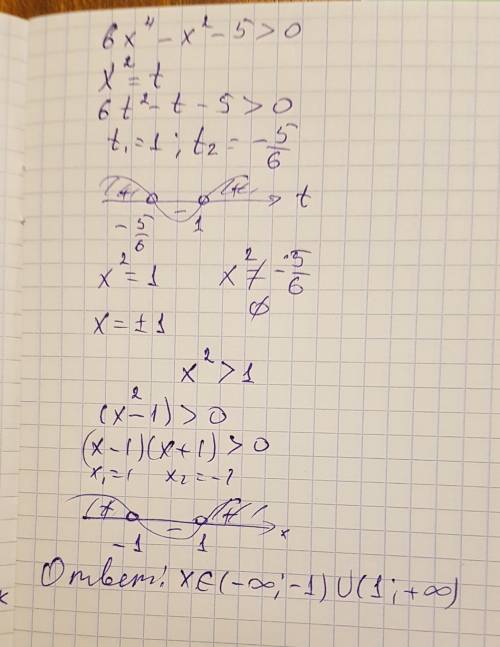 6x⁴ - x² - 5 > 0
x² = t
6t² - t - 5 > 0
t₁ = 1 ; t₂ = -5/6
+ - + t
-5/6 1
x² = 1 x² ≠ -5/6
x = ±1 ∅
x² > 1
(x² - 1) > 0
(x-1)(x+1) > 0
x₁ = 1 x₂ = -1
+ - + x
-1 1
Ответ: x ∈ (-∞; -1) ∪ (1; +∞)